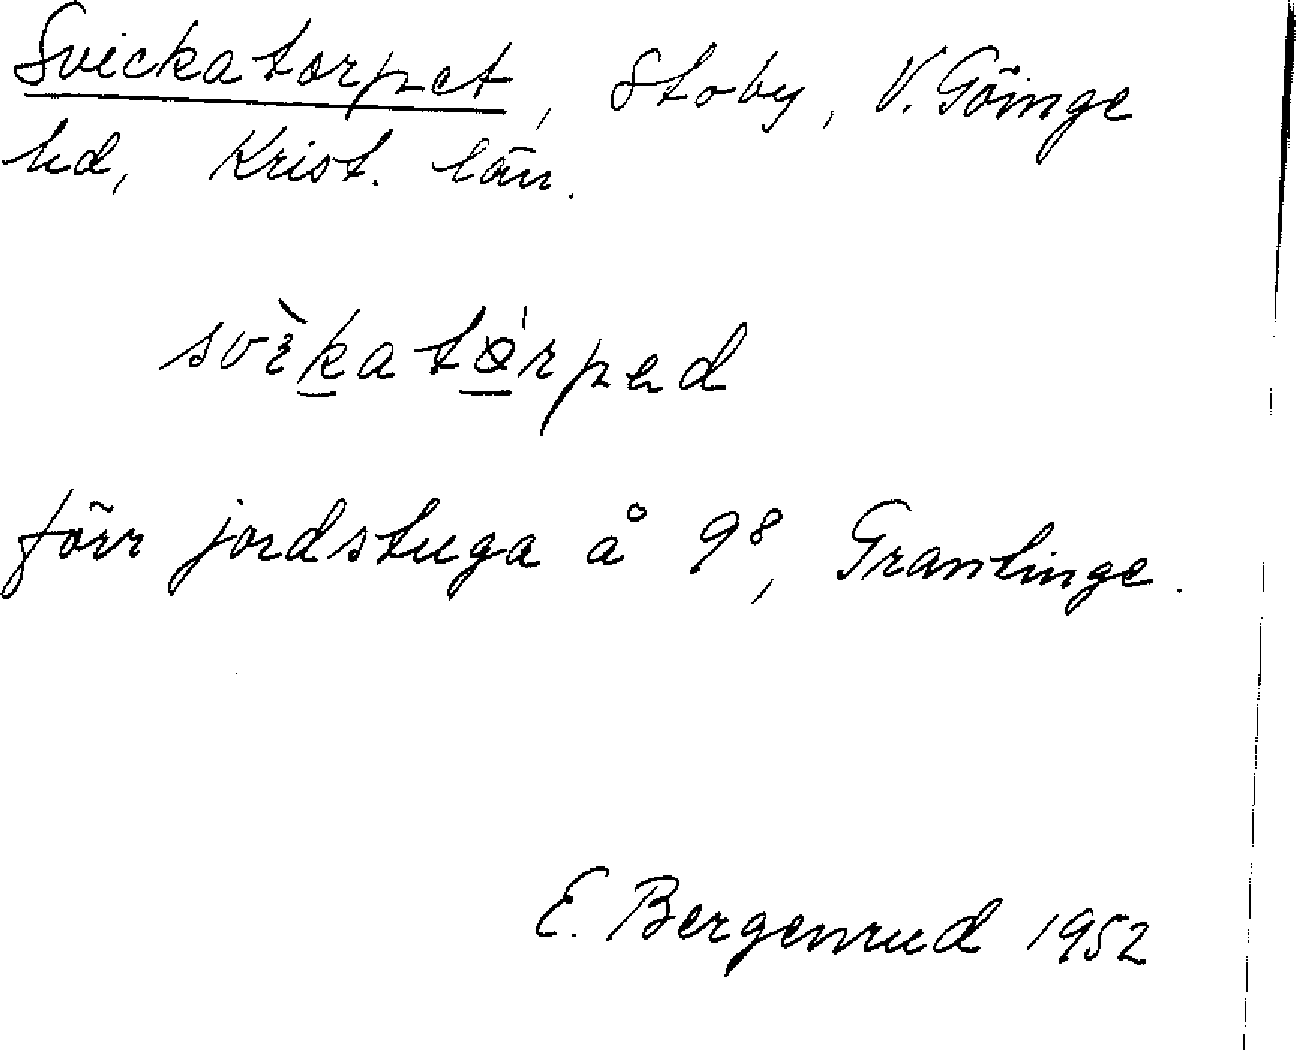 Svickatorpet, Stoby, V. Göinge
hd, Krist. län.
svɛ̀katɷ́rpəd
förr jordstuga å 9⁸, Grantinge.
E. Bergenrud 1952